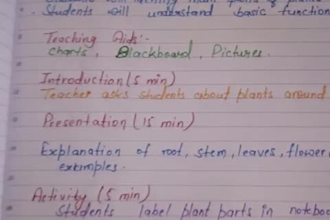 Students will understand basic function
Teaching Aids:-
charts, Blackboard, Pictures.
Introduction (5 min)
Teacher asks students about plants around
Presentation (15 min)
Explanation of root, stem, leaves, flower
examples.
Activity (5 min)
Students label plant parts in notebo